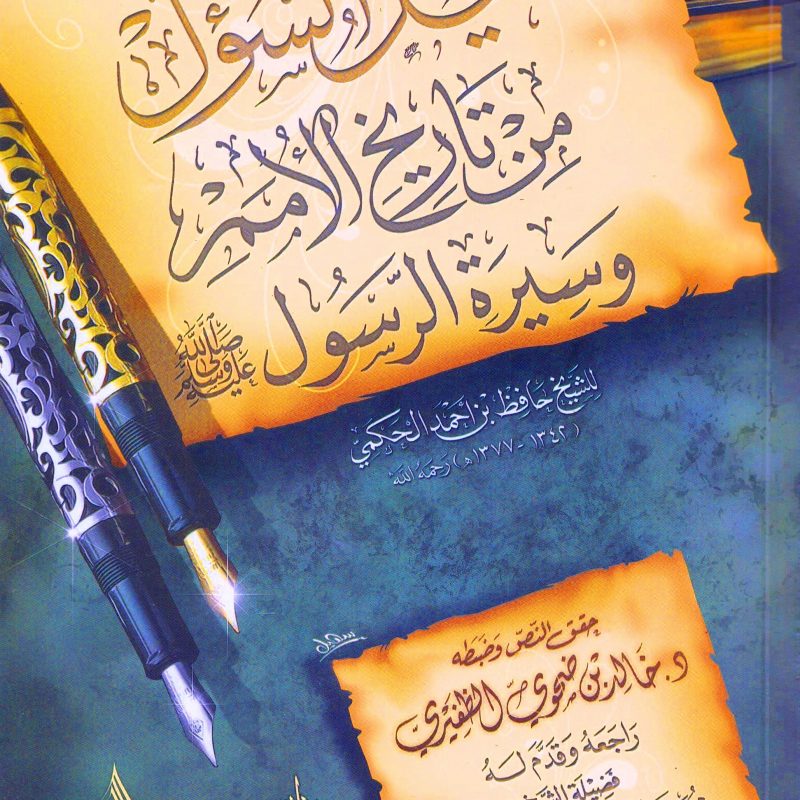 السَّؤُل
مِنْ تَارِيخِ الأُمَمِ
وَسِيرَةِ الرَّسُولِ صَلَّى اللَّهُ عَلَيْهِ وَسَلَّمَ
للشيخ حافظ بن أحمد الحكمي
(١٣٤٢ - ١٣٧٧ه) رحمه الله
حقق النص وضبطه
د. خالد بن ضحوي الظفيري
راجعه وقدم له
فضيلة الشيخ